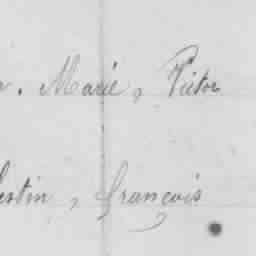 . Marie, Victor
estin, françois